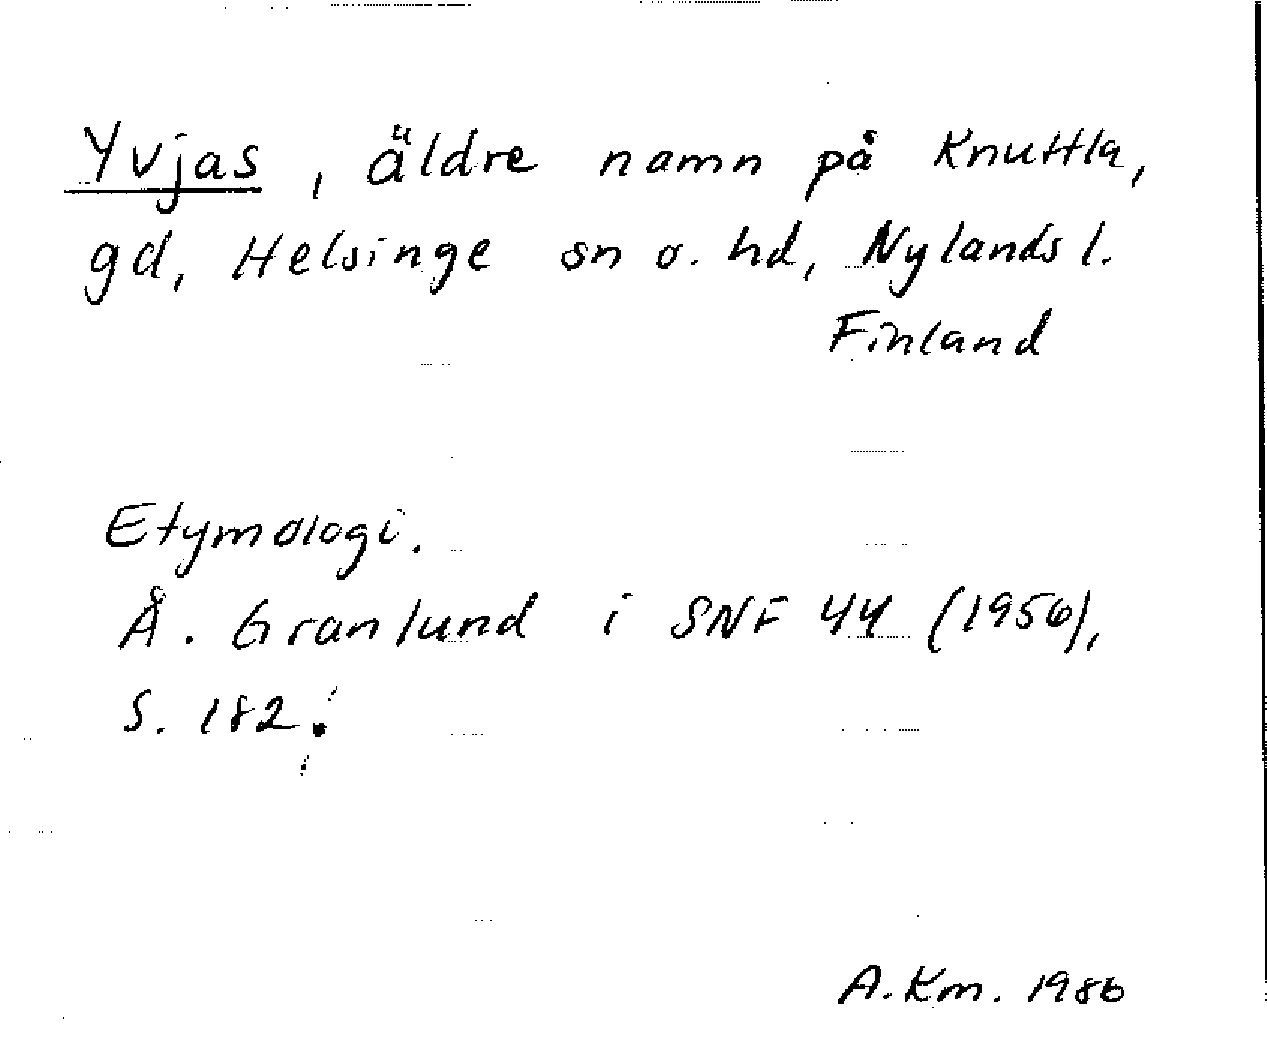 Yvjas, äldre namn på Knuttla,
gd, Helsinge sn o. hd, Nylands l.
Finland
Etymologi.
Å. Granlund i SNF 44 (1956),
S. 182.
A.Km. 1986